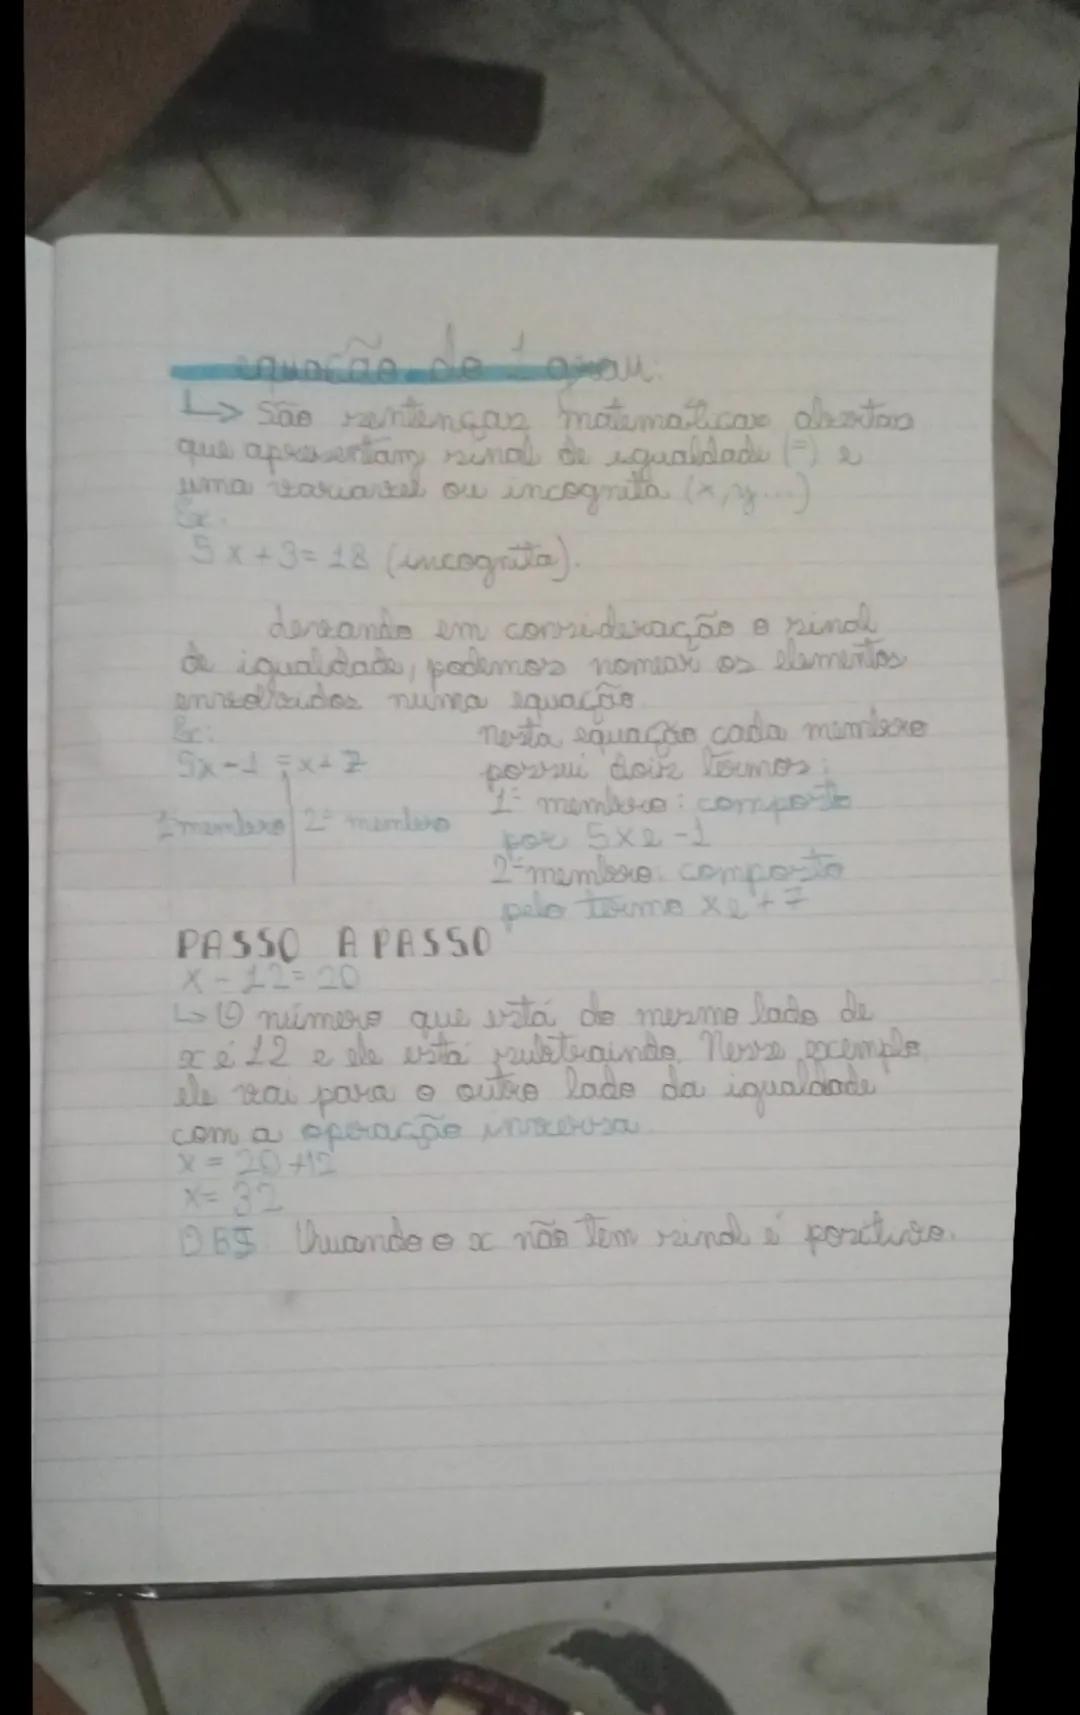 equação do 1 grau.
↳ São sentenças matematicas abertas
que apresentam sinal de igualdade (=) e
uma variavel ou incognita (x, y...)
Ex:
5x+3=18 (incognita).
levando em consideração o sinal
de igualdade, podemos nomear os elementos
envolvidos numa equação
Ex:
5x-1 = x+7
1º membro | 2º membro
nesta equação cada membro
possui dois termos:
1º membro: composto
por 5x e -1
2º membro: composto
pelo termo x e +7
PASSO A PASSO
x - 12 = 20
↳ O número que está do mesmo lado de
x é 12 e ele está subtraindo. Nesse exemplo
ele vai para o outro lado da igualdade
com a operação inversa.
x = 20 +12
x= 32
OBS: Quando o x não tem sinal é positivo.